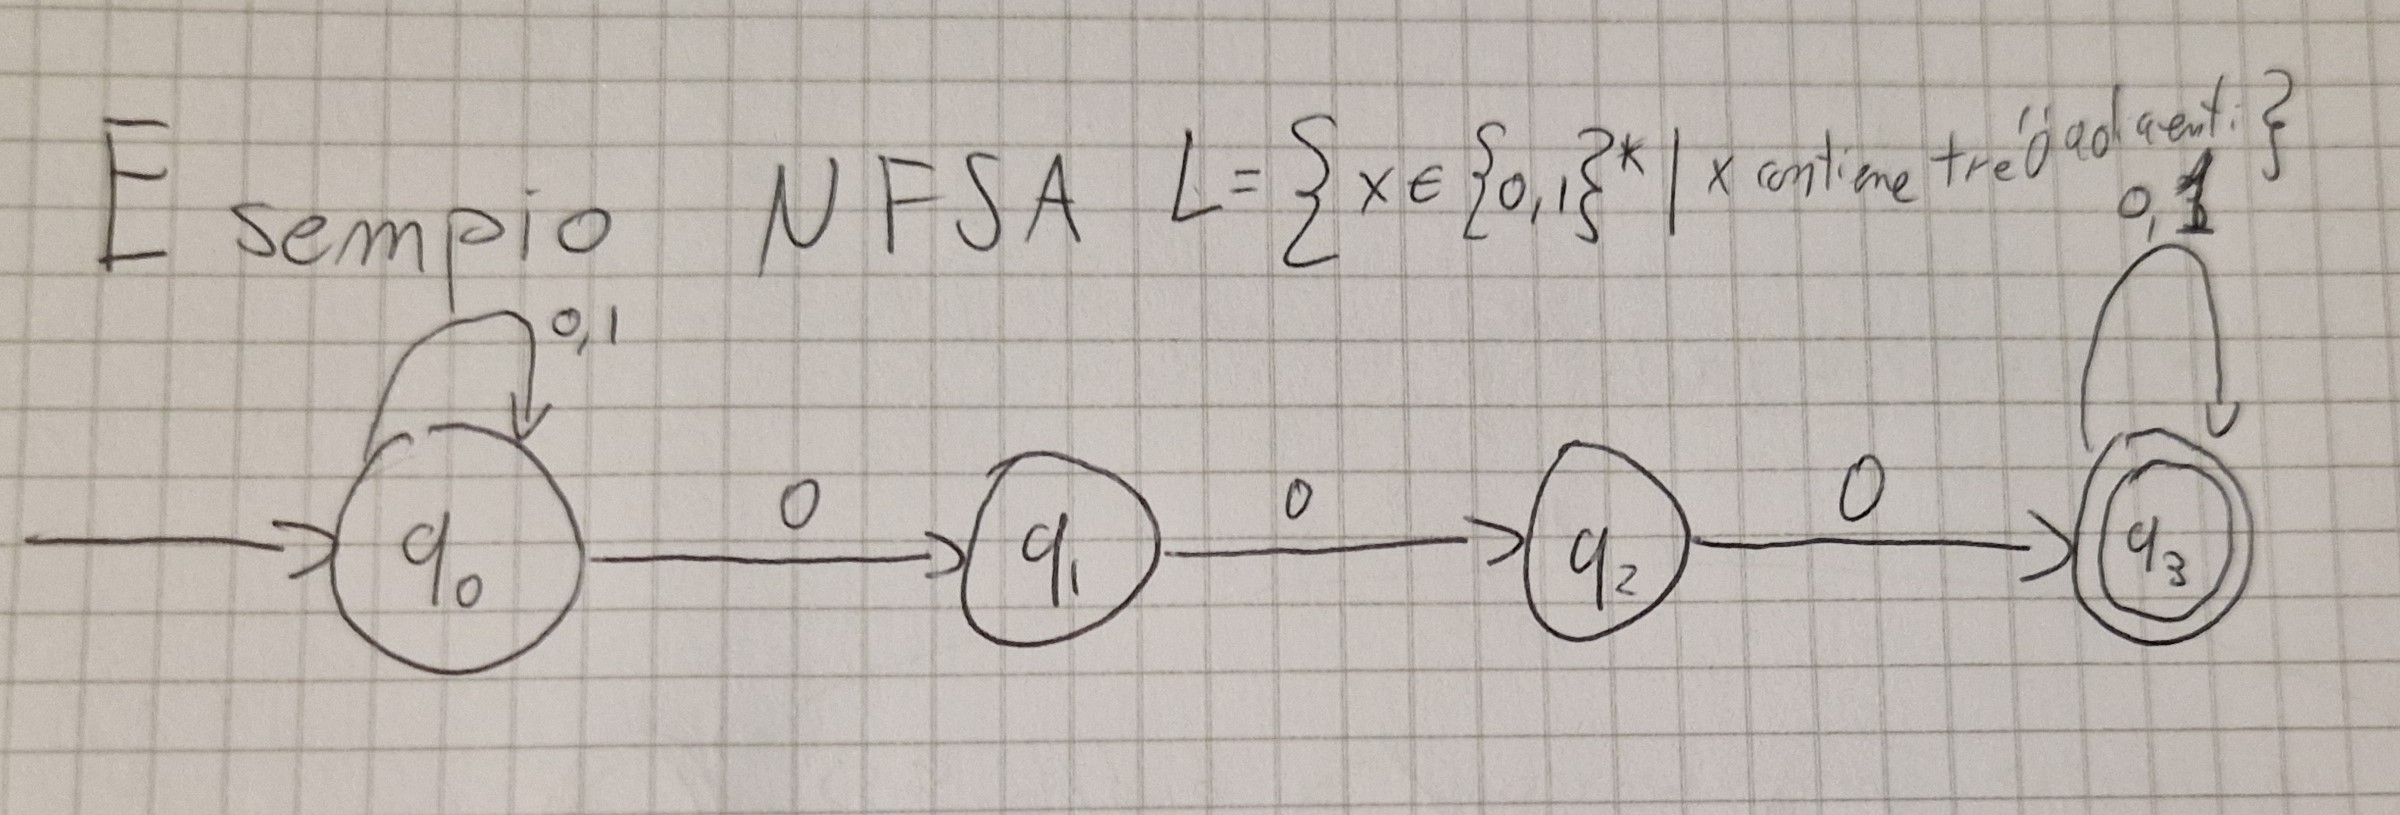 Esempio NFSA L={x∈{0,1}*| x contiene tre '0' adiacenti}
0,1
0,1
q0 0 q1 0 q2 0 q3